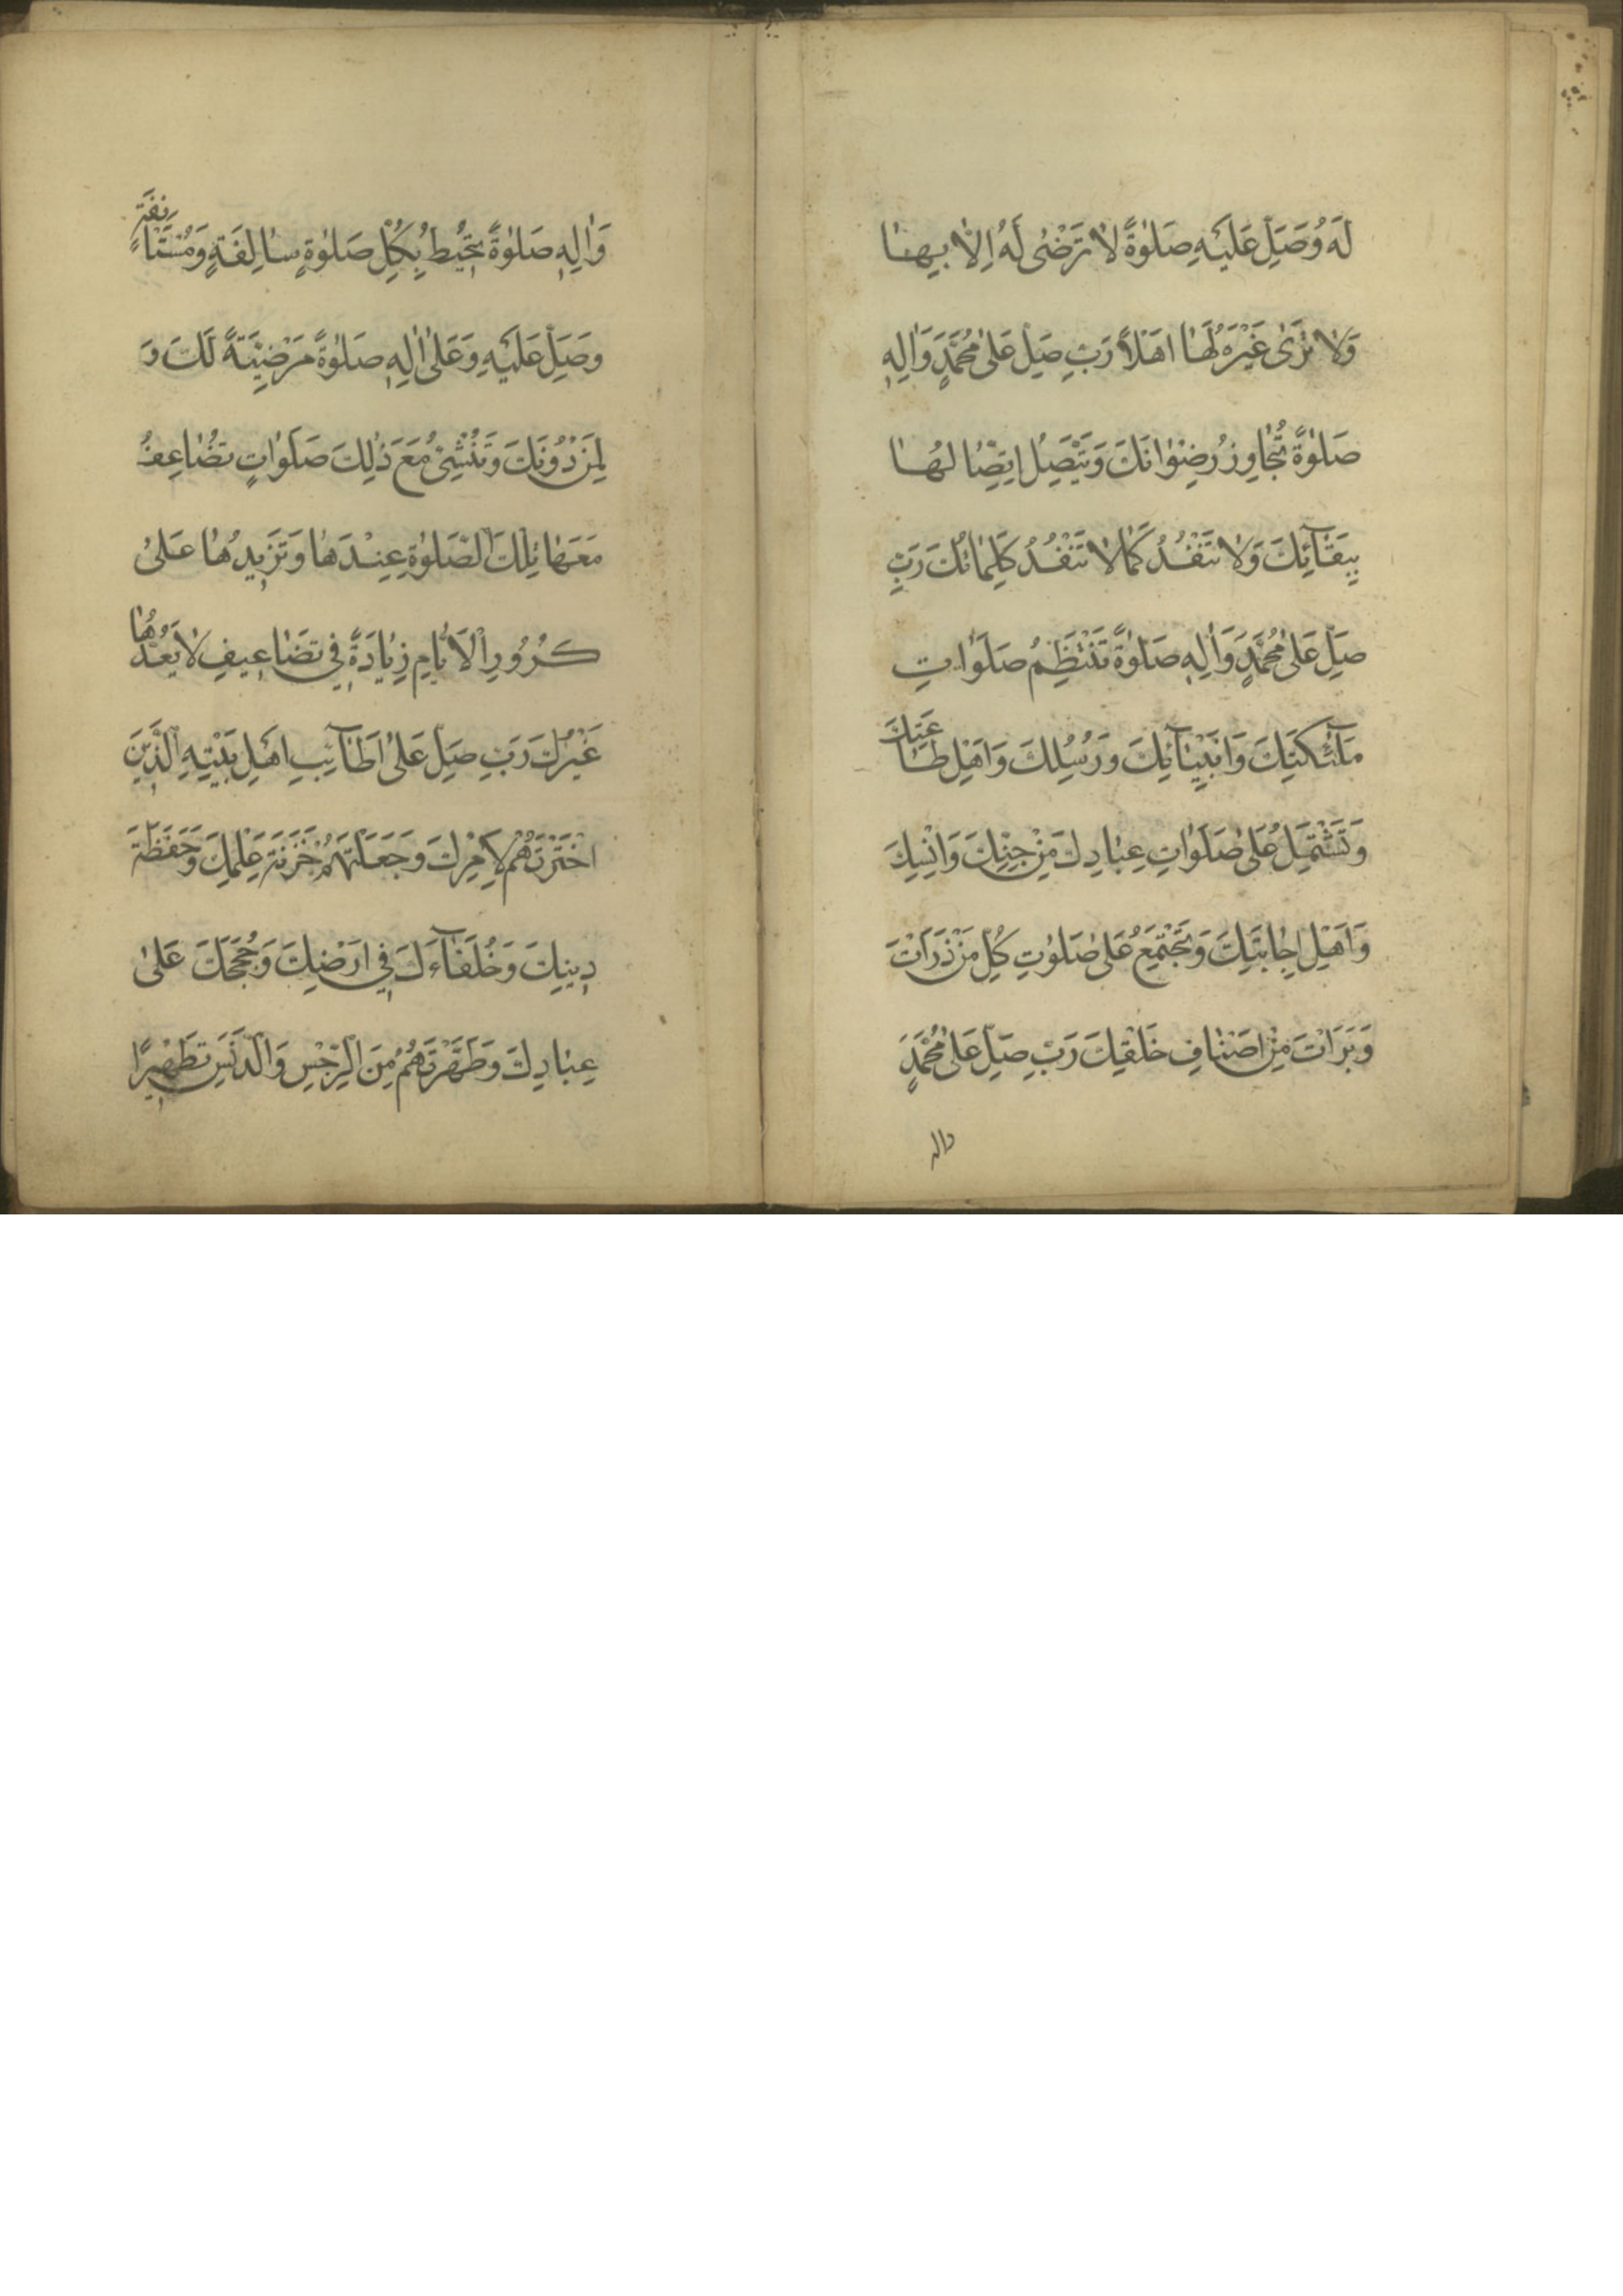 لَهُ وَصَلِّ عَلَيْهِ صَلٰوةً لَا تَرْضٰى لَهُ اِلَّا بِهَا
وَلَا تَرٰى غَيْرَهُ لَهَا اَهْلًا رَبِّ صَلِّ عَلٰى مُحَمَّدٍ وَاٰلِهٖ
صَلٰوةً تُجَاوِزُ رِضْوَانَكَ وَيَتَّصِلُ اتِّصَالُهَا
بِبَقَآئِكَ وَلَا تَنْفَدُ كَمَا لَا تَنْفَدُ كَلِمَاتُكَ رَبِّ
صَلِّ عَلٰى مُحَمَّدٍ وَاٰلِهٖ صَلٰوةً تَنْتَظِمُ صَلَوَاتِ
مَلٰٓئِكَتِكَ وَاَنْبِيَآئِكَ وَرُسُلِكَ وَاَهْلِ طَاعَتِكَ
وَتَشْتَمِلُ عَلٰى صَلَوَاتِ عِبَادِكَ مِنْ جِنِّكَ وَاِنْسِكَ
وَاَهْلِ اِجَابَتِكَ وَتَجْتَمِعُ عَلٰى صَلٰوتِ كُلِّ مَنْ ذَرَاْتَ
وَبَرَاْتَ مِنْ اَصْنَافِ خَلْقِكَ رَبِّ صَلِّ عَلٰى مُحَمَّدٍ
واله
وَاٰلِهٖ صَلٰوةً تُحِيْطُ بِكُلِّ صَلٰوةٍ سَالِفَةٍ وَمُسْتَاْنَفَةٍ
وَصَلِّ عَلَيْهِ وَعَلٰى اٰلِهٖ صَلٰوةً مَرْضِيَّةً لَكَ وَ
لِمَنْ دُوْنَكَ وَتُنْشِئُ مَعَ ذٰلِكَ صَلَوَاتٍ تُضَاعِفُ
مَعَهَا تِلْكَ الصَّلٰوةِ عِنْدَهَا وَتَزِيدُهَا عَلٰى
كُرُوْرِ الْاَيَّامِ زِيَادَةً فِي تَضَاعِيفِ لَا يَعُدُّهَا
غَيْرُكَ رَبِّ صَلِّ عَلٰى اَطَآئِبِ اَهْلِ بَيْتِهِ الَّذِيْنَ
اخْتَرْتَهُمْ لِاَمْرِكَ وَجَعَلْتَهُمْ خَزَنَةَ عِلْمِكَ وَحَفَظَةَ
دِينِكَ وَخُلَفَآءَكَ فِي اَرْضِكَ وَحُجَجَكَ عَلٰى
عِبَادِكَ وَطَهَّرْتَهُمْ مِنَ الرِّجْسِ وَالدَّنَسِ تَطْهِيرًا